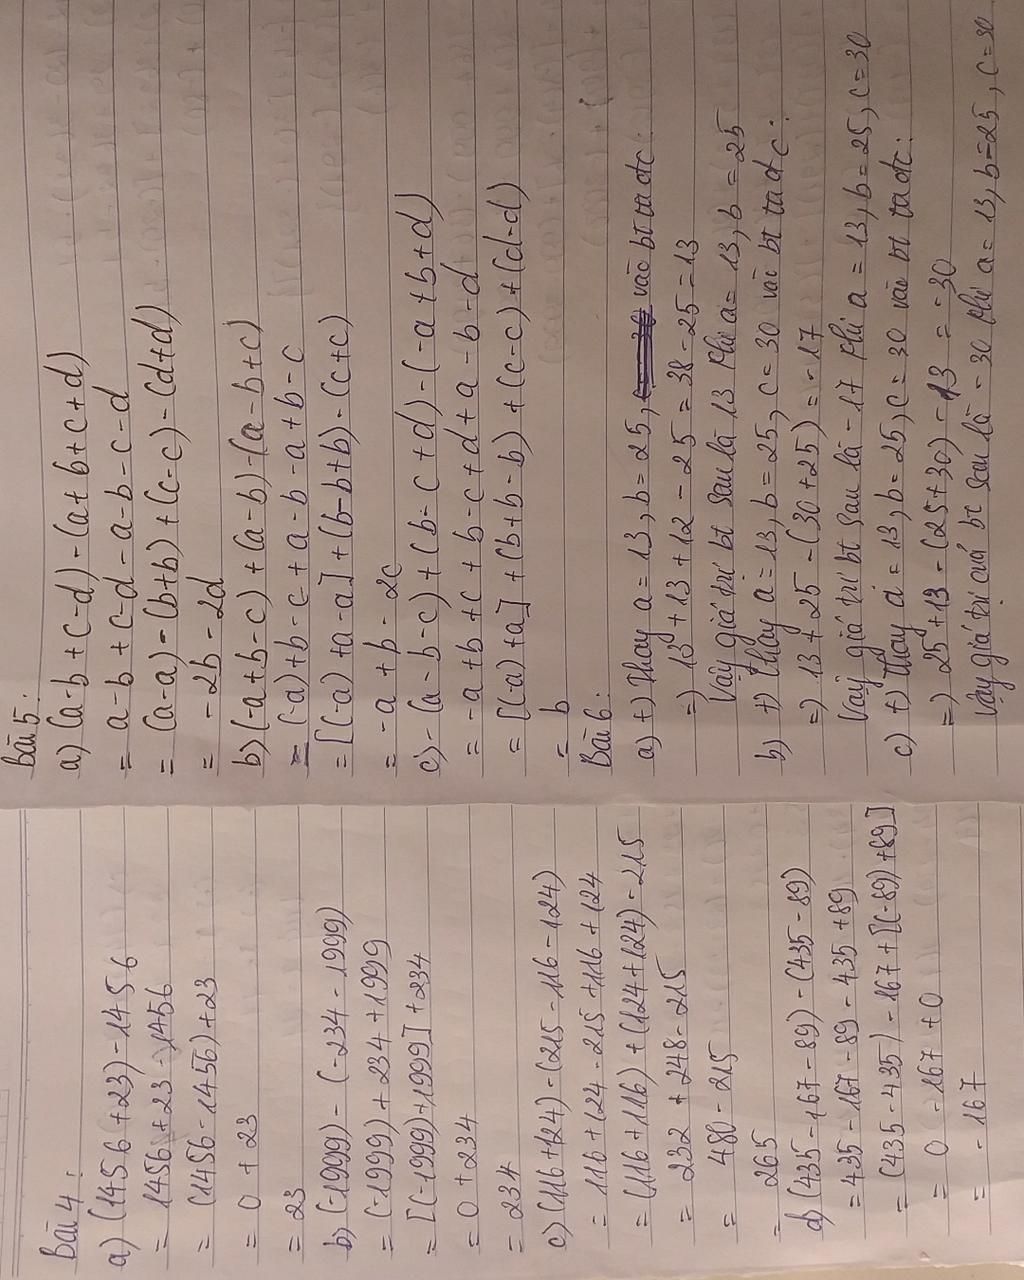 Bài 4:
a) (1456 + 23) - 1456
= 1456 + 23 - 1456
= (1456 - 1456) + 23
= 0 + 23
= 23
b) (-1999) - (-234 - 1999)
= (-1999) + 234 + 1999
= [(-1999) + 1999] + 234
= 0 + 234
= 234
c) (116 + 124) - (215 - 116 - 124)
= 116 + 124 - 215 + 116 + 124
= (116 + 116) + (124 + 124) - 215
= 232 + 248 - 215
= 480 - 215
= 265
d) (435 - 167 - 89) - (435 - 89)
= 435 - 167 - 89 - 435 + 89
= (435 - 435) - 167 + [(-89) + 89]
= 0 - 167 + 0
= - 167
Bài 5:
a) (a - b + c - d) - (a + b + c + d)
= a - b + c - d - a - b - c - d
= (a - a) - (b + b) + (c - c) - (d + d)
= - 2b - 2d
b) (-a + b - c) + (a - b) - (a - b + c)
= (-a) + b - c + a - b - a + b - c
= [(-a) + a - a] + (b - b + b) - (c + c)
= -a + b - 2c
c) - (a - b - c) + (b - c + d) - (-a + b + d)
= -a + b + c + b - c + d + a - b - d
= [(-a) + a] + (b + b - b) + (c - c) + (d - d)
= b
Bài 6:
a) t) Thay a = 13, b = 25, vào bt ta đc:
=) 13 + 13 + 12 - 25 = 38 - 25 = 13
Vậy giá trị bt sau là 13 khi a = 13, b = 25
b) t) Thay a = 13, b = 25, c = 30 vào bt ta đc:
=) 13 + 25 - (30 + 25) = -17
Vậy giá trị bt sau là - 17 khi a = 13, b = 25, c = 30
c) t) Thay a = 13, b = 25, c = 30 vào bt ta đc:
=) 25 + 13 - (25 + 30) - 13 = - 30
Vậy giá trị của bt sau là - 30 khi a = 13, b = 25, c = 30